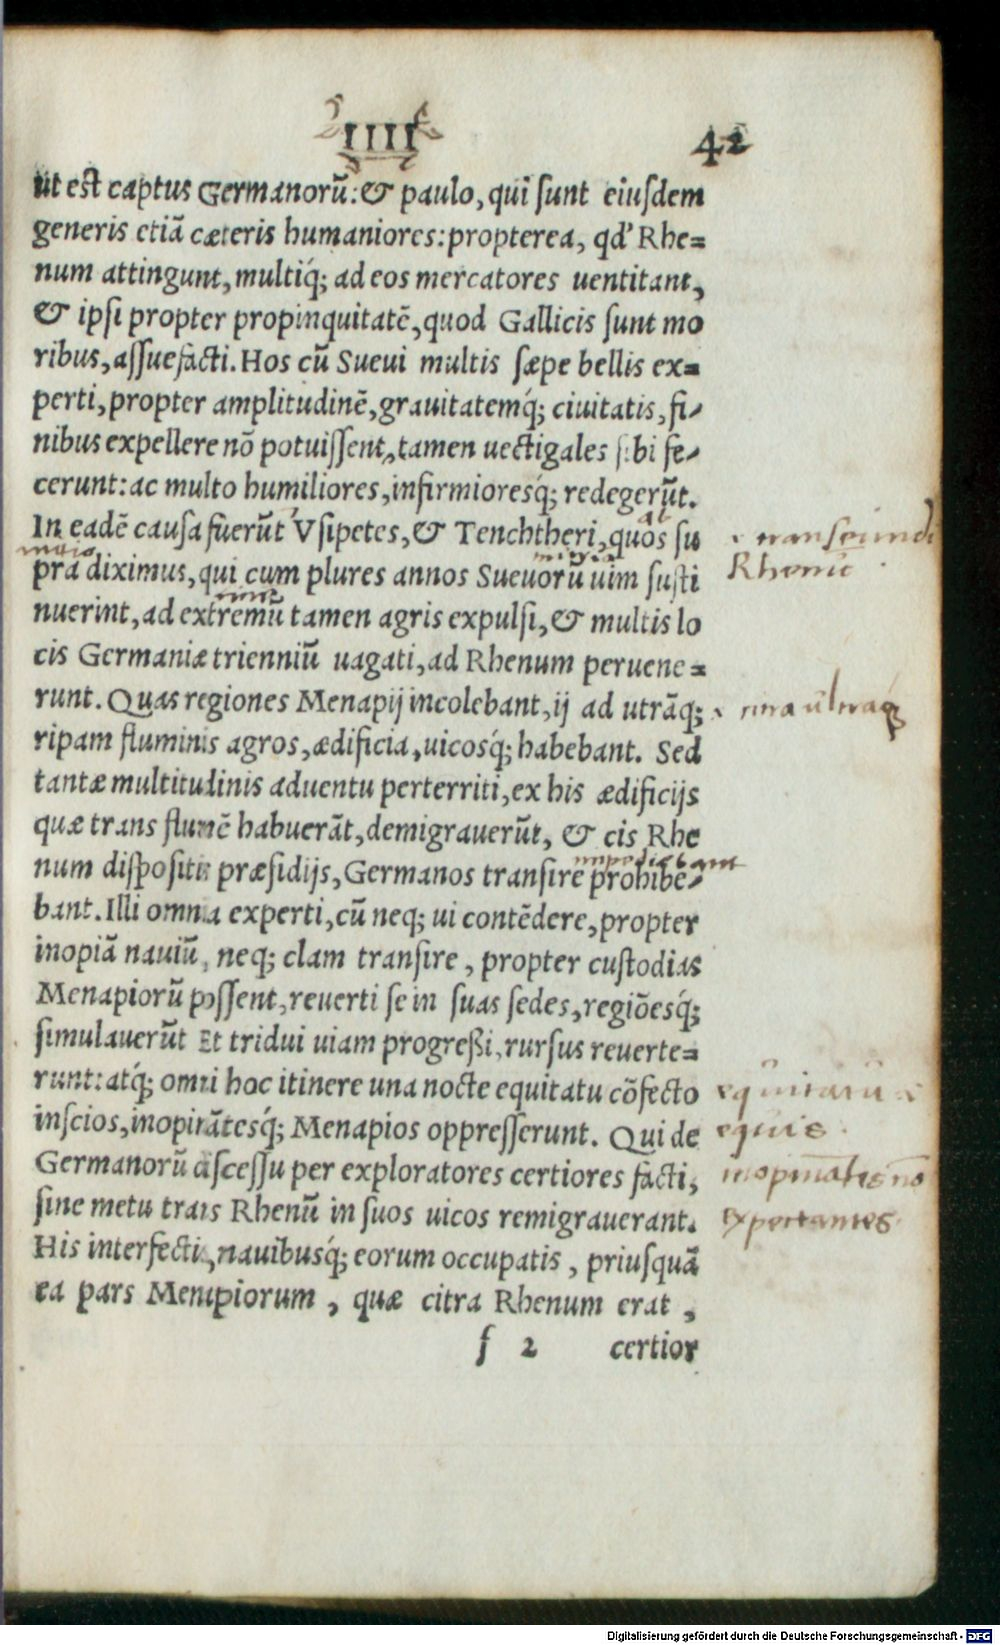 IIII 42
ut est captus Germanorū: & paulo, qui sunt eiusdem
generis etiā cæteris humaniores: propterea, qd' Rhe=
num attingunt, multiq́; ad eos mercatores uentitant,
& ipsi propter propinquitatē, quod Gallicis sunt mo
ribus, assuefacti. Hos cū Sueui multis sæpe bellis ex=
perti, propter amplitudinē, grauitatemq́; ciuitatis, fi-
nibus expellere nō potuissent, tamen uectigales sibi fe-
cerunt: ac multo humiliores, infirmioresq́; redegerūt.
In eadē causa fuerūt Vsipetes, & Tenchtheri, quos su
transeundi
pra diximus, qui cum plures annos Sueuorū uim susti
Rheni
nuerint, ad extremū tamen agris expulsi, & multis lo
cis Germaniæ trienniū uagati, ad Rhenum peruene=
runt. Quas regiones Menapij incolebant, ij ad utrāq;
ripam fluminis agros, ædificia, uicosq́; habebant. Sed
tantæ multitudinis aduentu perterriti, ex his ædificijs
quæ trans flumē habuerāt, demigrauerūt, & cis Rhe
impediebant
num dispositis præsidijs, Germanos transire prohibe-
bant. Illi omnia experti, cū neq; ui contēdere, propter
inopiā nauiū, neq; clam transire, propter custodias
Menapiorū possent, reuerti se in suas sedes, regiōesq́;
simulauerūt Et tridui uiam progreßi, rursus reuerte=
runt: atq́; omni hoc itinere una nocte equitatu cōfecto
equitatu
inscios, inopinātesq́; Menapios oppresserunt. Qui de
equis
Germanorū discessu per exploratores certiores facti,
inopinātes nō
sine metu trans Rhenū in suos uicos remigrauerant.
expectantes
His interfectis, nauibusq́; eorum occupatis, priusquā
ea pars Menapiorum, quæ citra Rhenum erat,
f 2 certior
Digitalisierung gefördert durch die Deutsche Forschungsgemeinschaft - DFG